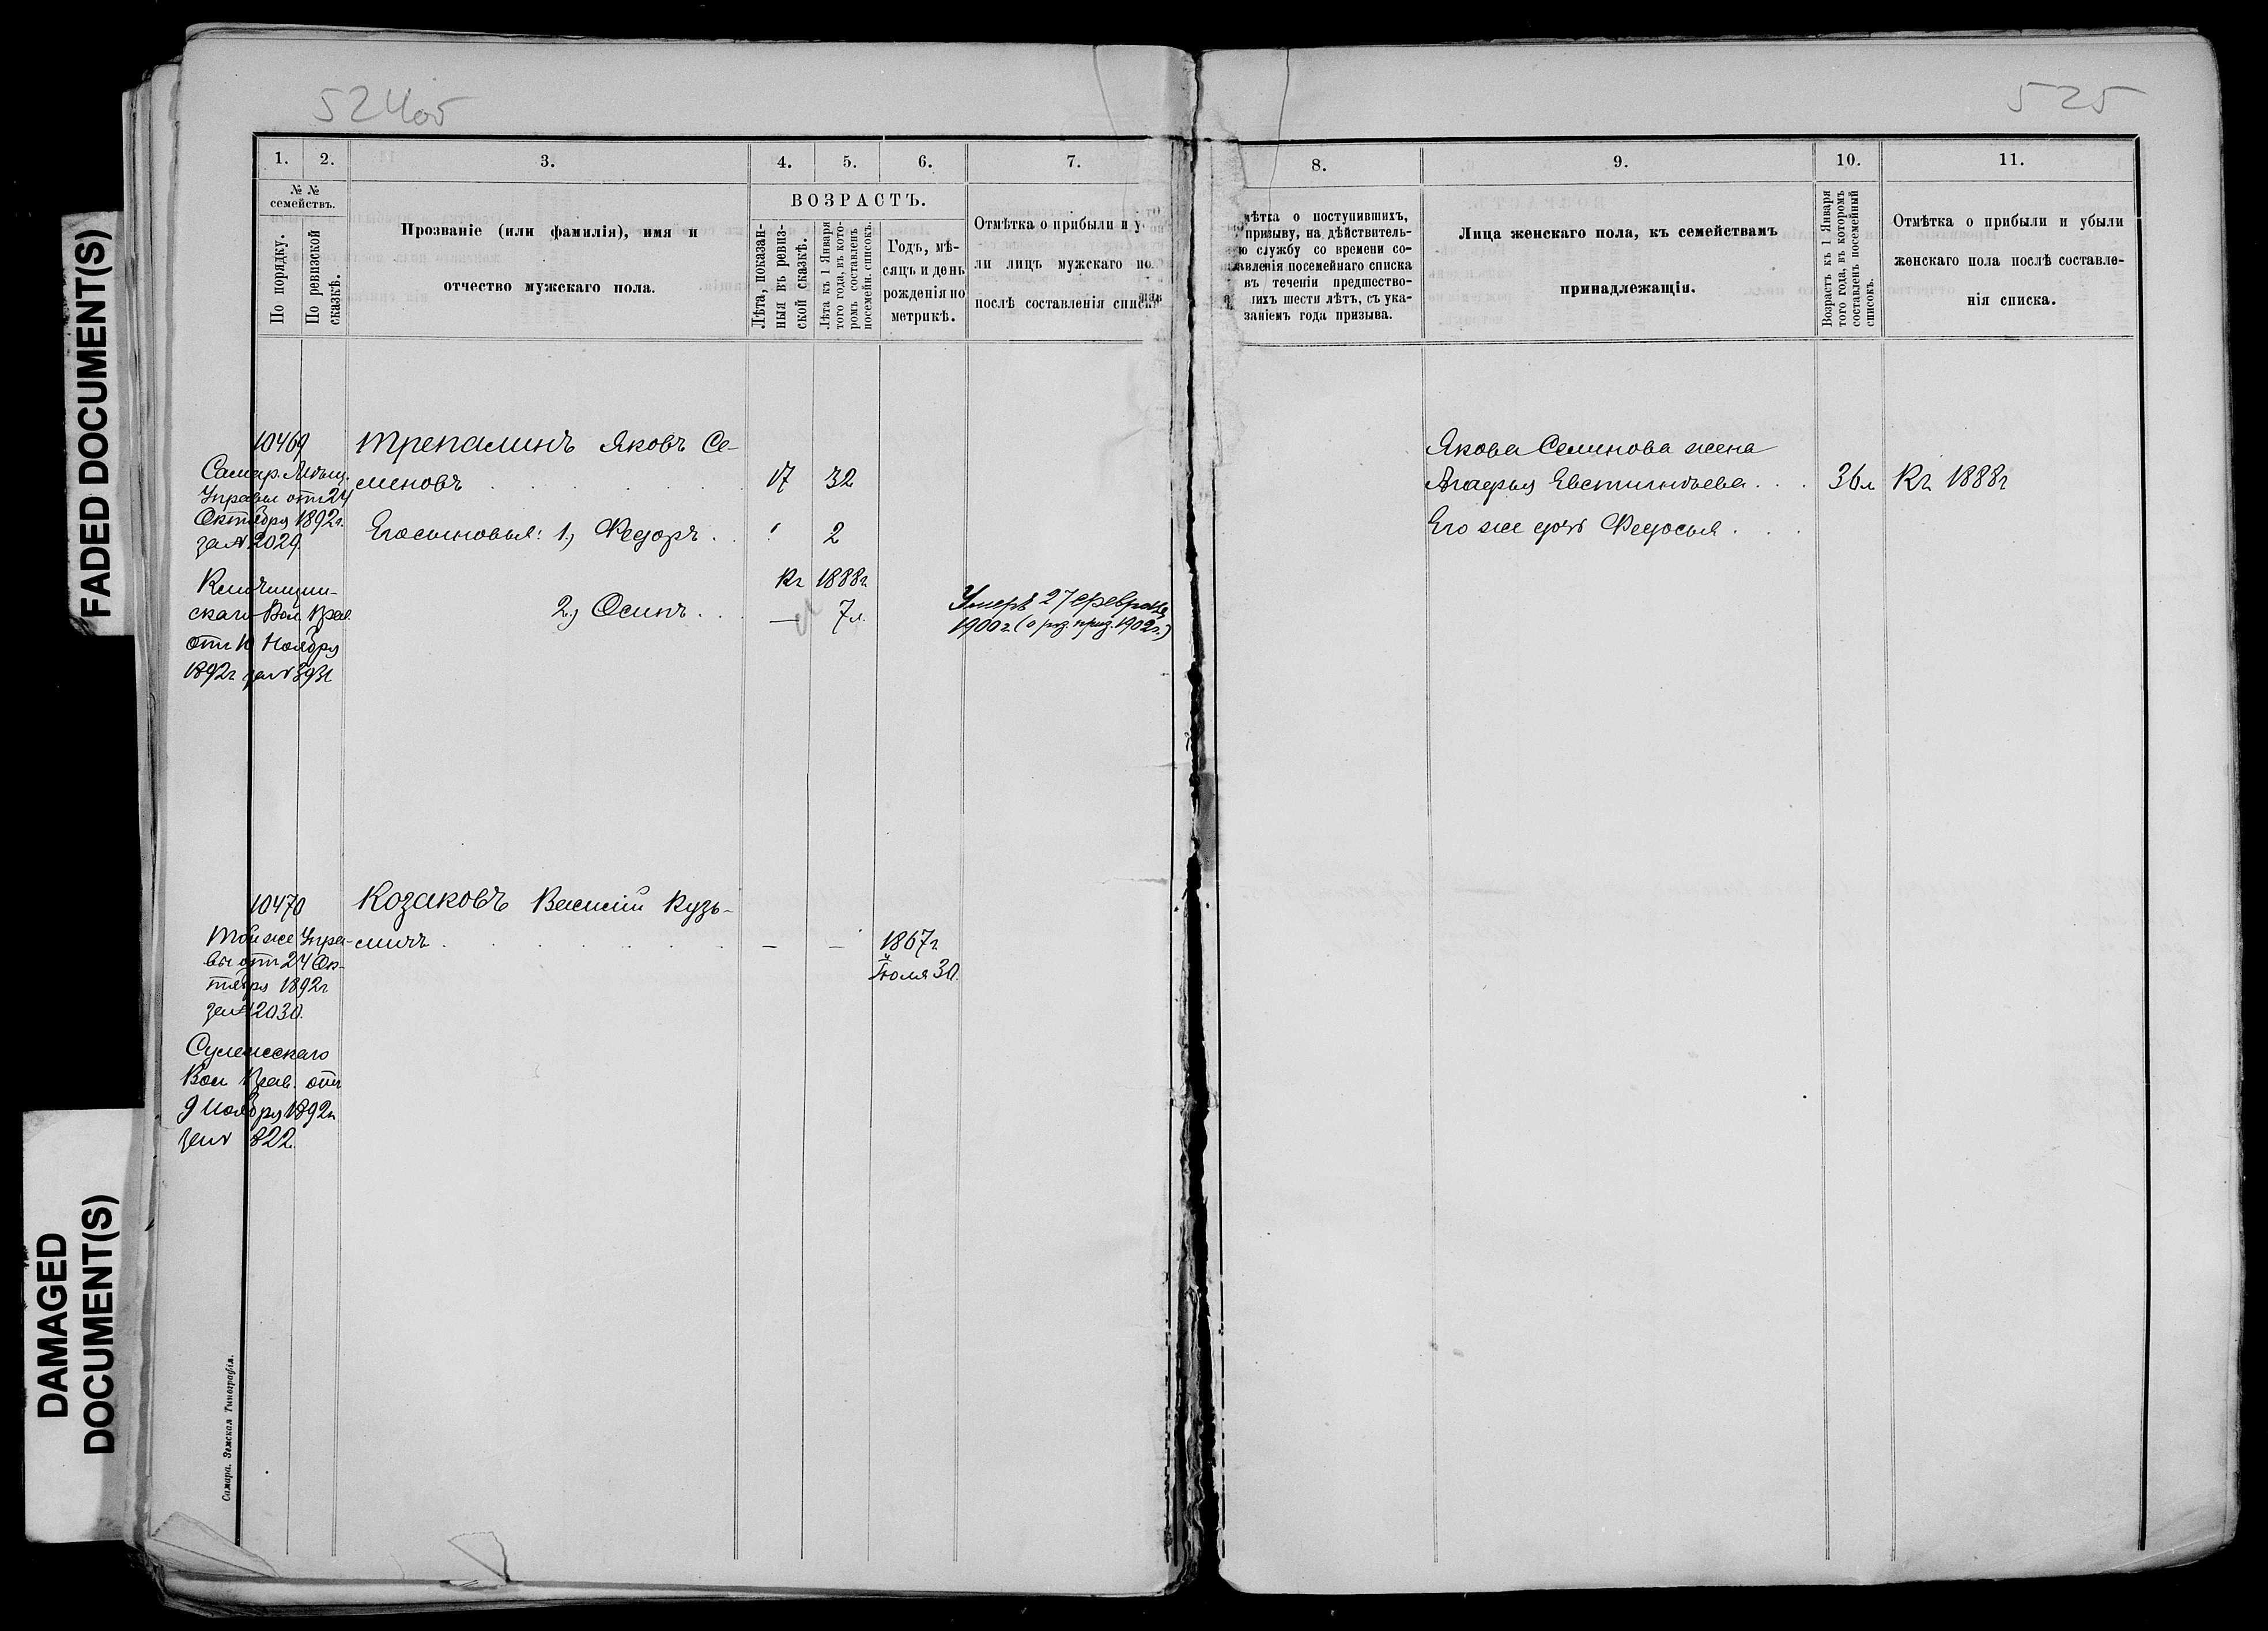 FADED DOCUMENT(S)
DAMAGED
DOCUMENT(S)
524об
1.
2.
3.
4.
5.
6.
7.
№ №
семействъ.
По порядку.
По ревизской
сказкѣ.
Прозваніе (или фамилія), имя и
отчество мужскаго пола.
ВОЗРАСТЪ.
Лѣта, показан-
ныя въ ревиз-
ской сказкѣ.
Лѣта къ 1 Января
того года, въ кото-
ромъ составленъ
посемейн. списокъ.
Годъ, мѣ-
сяцъ и день
рожденія по
метрикѣ.
Отмѣтка о прибыли и у
ли лицъ мужскаго по
послѣ составленія списка
10469
Самар. Мѣщ.
Управы отъ 24
Октября 1892г.
за № 2029
скаго Вол. Прав.
отъ 10 Ноября
1892г за № 3931
Трепалинъ Яковъ Се-
меновъ 17 32
Его сыновья: 1, Федоръ 2
Къ 1888г.
2, Осипъ — 7л.
Умеръ 27 февраля
1900г. (о роз. приз. 1902г.)
10470
Той же Упра-
вы отъ 24 Ок-
тября 1892г
за № 2030.
Вол Прав. отъ
9 Ноября 1892г.
за № 822.
Козаковъ Василій Кузь-
мичъ — — 1867г
Іюля 30.
Самара. Земская Типографія.
525
8.
9.
10.
11.
мѣтка о поступившихъ,
призыву, на дѣйствитель-
ю службу со времени со-
авленія посемейнаго списка
въ теченіи предшество-
ихъ шести лѣтъ, съ ука-
заніемъ года призыва.
Лица женскаго пола, къ семействамъ
принадлежащія.
Возрастъ къ 1 Января
того года, въ которомъ
составленъ посемейный
списокъ.
Отмѣтка о прибыли и убыли
женскаго пола послѣ составле-
нія списка.
Якова Семенова жена
Агафья Евстигнѣева 36л Къ 1888г
Его же дочь Федосья